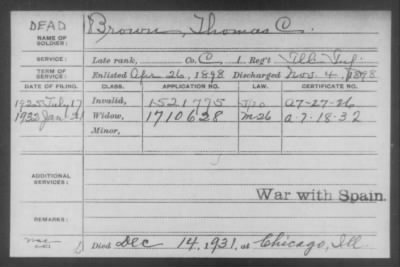 DEAD
NAME OF SOLDIER: Brown, Thomas C.
SERVICE: Late rank, Co. C, 1. Reg't Ill. Inf.
TERM OF SERVICE: Enlisted Apr 26, 1898 Discharged Nov. 4, 1898
DATE OF FILING. CLASS. APPLICATION NO. LAW. CERTIFICATE NO.
1925 July 17 Invalid, 1521775 a-7-27-26
1932 Jan 21 Widow, 1710638 M-26 a-7-18-32
Minor,
ADDITIONAL SERVICES:
War with Spain.
REMARKS:
Died Dec 14, 1931, at Chicago, Ill.